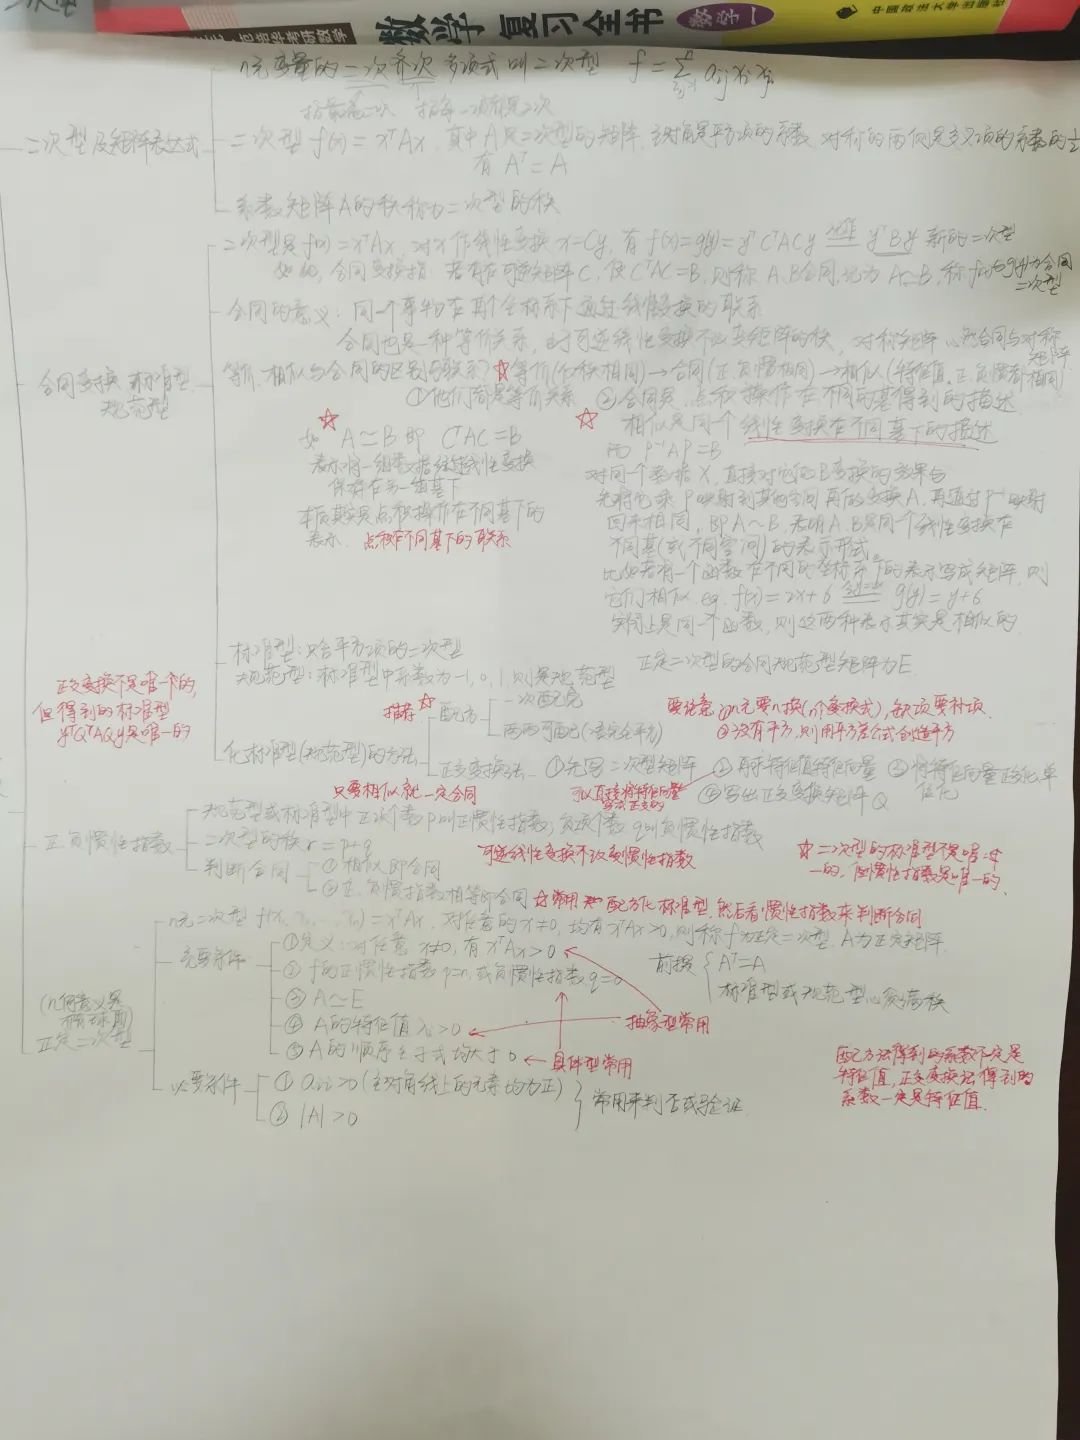 数学复习全书
数学一
中国政法大学出版社
n元变量的二次齐次多项式叫二次型 f=Σ aij xi xj
指最高二次 指每一项都是二次
二次型及矩阵表达式
二次型 f(x)=xᵀAx, 其中A是二次型的矩阵, 主对角是平方项的系数, 对称的两侧是交叉项的系数的½
有 Aᵀ=A
系数矩阵A的秩称为二次型的秩
二次型是 f(x)=xᵀAx, 对x作线性变换 x=Cy, 有 f(x)=g(y)=yᵀCᵀACy 记作 yᵀBy 新的二次型
合同变换指 若存在可逆矩阵C, 使CᵀAC=B, 则称A, B合同, 记为A≃B, 称f(x)与g(y)为合同
二次型
合同的意义: 同一个事物在两个坐标系下通过线性变换的联系
合同也是一种等价关系, 由于可逆线性变换不改变矩阵的秩, 对称矩阵必须合同与对称
矩阵
合同变换 标准型
规范型
等价, 相似与合同的区别与联系? ☆等价(仅秩相同)→合同(正, 负惯相同)→相似(特征值, 正, 负惯都相同)
①他们都是等价关系 ②合同是, 点积操作在不同的基得到的描述
☆ 相似是同一个线性变换在不同基下的描述
☆
如 A≃B 即 CᵀAC=B
表示将一组数据经过线性变换
保存在另一组基下
本质其实是点积操作在不同基下的
表示. 点积在不同基下的联系
而 P⁻¹AP=B
对同一个数据X, 直接对它作B变换的效果与
先将它乘P映射到其他空间再作变换A, 再通过P⁻¹映射
回来相同, 即A∼B, 表明A, B是同一个线性变换在
不同基(或不同空间)的表示形式。
比如若有一个函数在不同的坐标系下的表示写成矩阵, 则
它们相似. eg. f(x)=2x+6 g(y)=y+6
实际上是同一个函数, 则这两种表示其实是相似的.
标准型: 只含平方项的二次型
规范型: 标准型中系数为-1, 0, 1, 则是规范型
正定二次型的合同规范型矩阵为E.
正交变换不是唯一的,
但得到的标准型
yᵀQᵀAQy是唯一的
化标准型(规范型)的方法
推荐☆
配方
一次配完
两两可配(凑完全平方)
要注意 ①n元要n换(n个变换式), 缺项要补项.
②没有平方, 则用平方差公式创造平方
正交变换法 ①先写二次型矩阵 ②再求特征值特征向量 ③将特征向量正交化单
位化
④写出正交变换矩阵Q
只要相似就一定合同
可以直接将特征向量
正, 负惯性指数
规范型或标准型中正项个数p叫正惯性指数, 负项个数q叫负惯性指数
二次型的秩 r=p+q
可逆线性变换不改变惯性指数
☆二次型的标准型不是唯
一的, 但惯性指数是唯一的.
判断合同
①相似即合同
②正, 负惯指数相等即合同 ☆常用 配方化标准型, 然后看惯性指数来判断合同
n元二次型 f(x₁, x₂, … xn)=xᵀAx, 对任意的x≠0, 均有xᵀAx>0, 则称f为正定二次型. A为正定矩阵.
充要条件
①定义: 对任意x≠0, 有xᵀAx>0
②f的正惯性指数 p=n, 或负惯性指数 q=0
③A≃E
④A的特征值λi>0
⑤A的顺序主子式均大于0
前提 Aᵀ=A
标准型或规范型必须满秩
抽象型常用
具体型常用
(几何意义是
椭球面)
正定二次型
必要条件
①aii>0(主对角线上的元素均为正)
②|A|>0
常用来判否或验证
配方法得到的系数不一定是
特征值, 正交变换法得到的
系数一定是特征值.